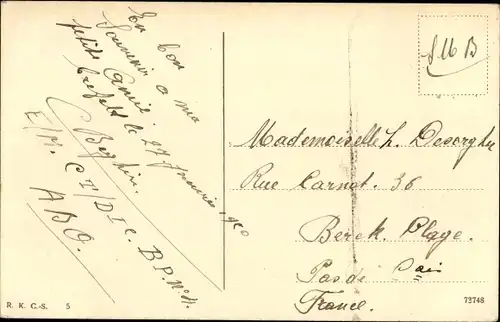 En bon
Souvenir a ma
petite amie.
Crefelt le 27 janvier 1920
C Beghin.
E/M. C I/D I c. B P. N
ABO.
S M B
Mademoiselle L. Desorghe
Rue Carnot. 36
Berck. Plage.
Pas de Cais
France.
R. K. C.-S. 5
73748